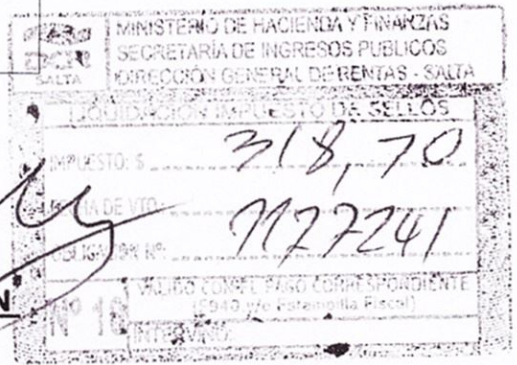 MINISTERIO DE HACIENDA Y FINANZAS
SECRETARÍA DE INGRESOS PUBLICOS
DIRECCIÓN GENERAL DE RENTAS - SALTA
SALTA
LIQUIDACIÓN IMPUESTO DE SELLOS
IMPUESTO: $ 318,70
FECHA DE VTO.:
OBLIGACIÓN Nº: 1127241
VALIDO CON EL PAGO CORRESPONDIENTE
(F940 y/o Estampilla Fiscal)
Nº 16
INTERVINO: